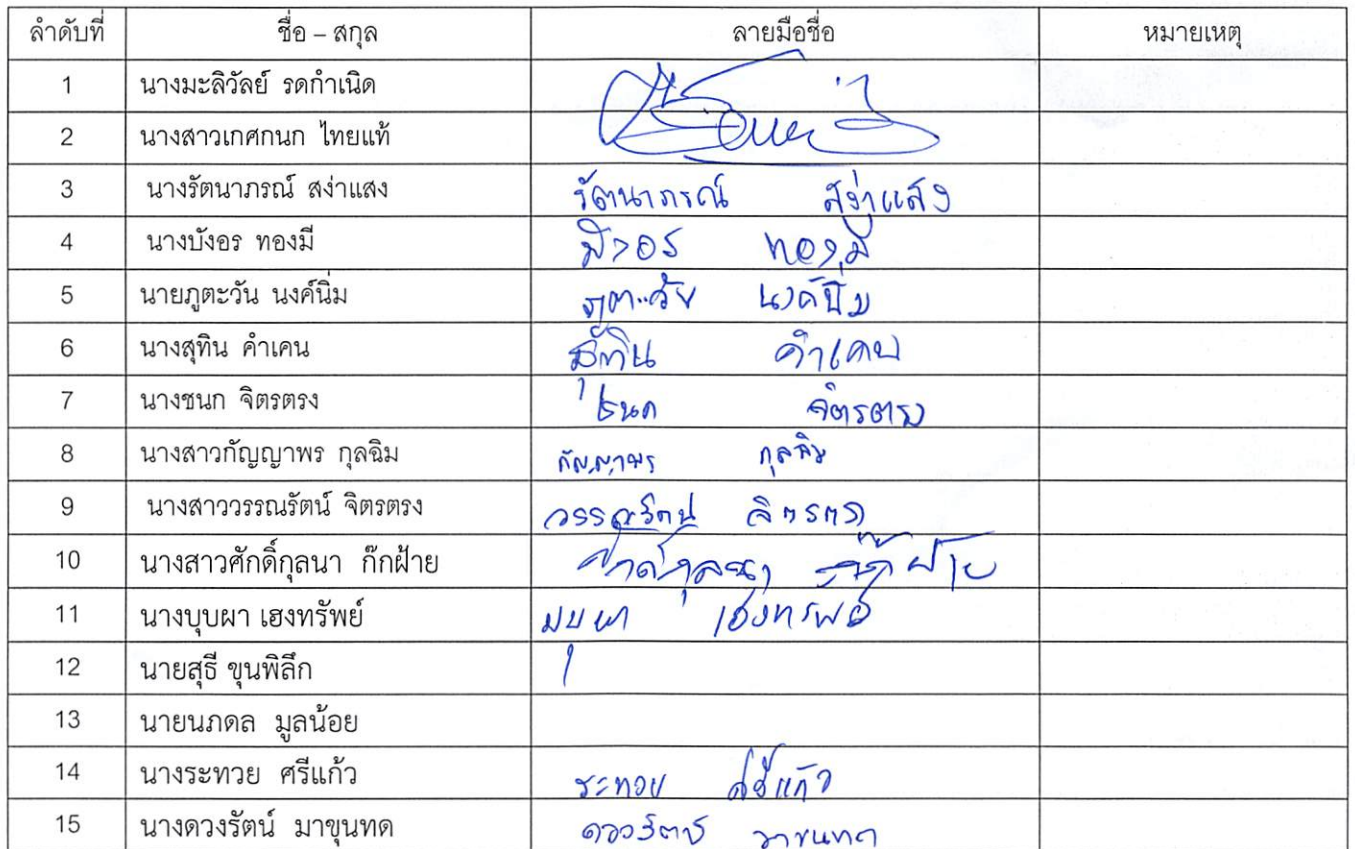 ลำดับที่ ชื่อ – สกุล ลายมือชื่อ หมายเหตุ
1 นางมะลิวัลย์ รดกำเนิด
2 นางสาวเกศกนก ไทยแท้
3 นางรัตนาภรณ์ สง่าแสง รัตนาภรณ์ สง่าแสง
4 นางบังอร ทองมี บังอร ทองมี
5 นายภูตะวัน นงค์นิ่ม นงค์นิ่ม
6 นางสุทิน คำเคน สุทิน คำเคน
7 นางชนก จิตรตรง ชนก จิตรตรง
8 นางสาวกัญญาพร กุลฉิม กัญญาพร กุลฉิม
9 นางสาววรรณรัตน์ จิตรตรง วรรณรัตน์ จิตรตรง
10 นางสาวศักดิ์กุลนา ก๊กฝ้าย ศักดิ์กุลนา ก๊กฝ้าย
11 นางบุบผา เฮงทรัพย์ บุบผา เฮงทรัพย์
12 นายสุธี ขุนพิลึก
13 นายนภดล มูลน้อย
14 นางระทวย ศรีแก้ว ระทวย ศรีแก้ว
15 นางดวงรัตน์ มาขุนทด ดวงรัตน์ มาขุนทด